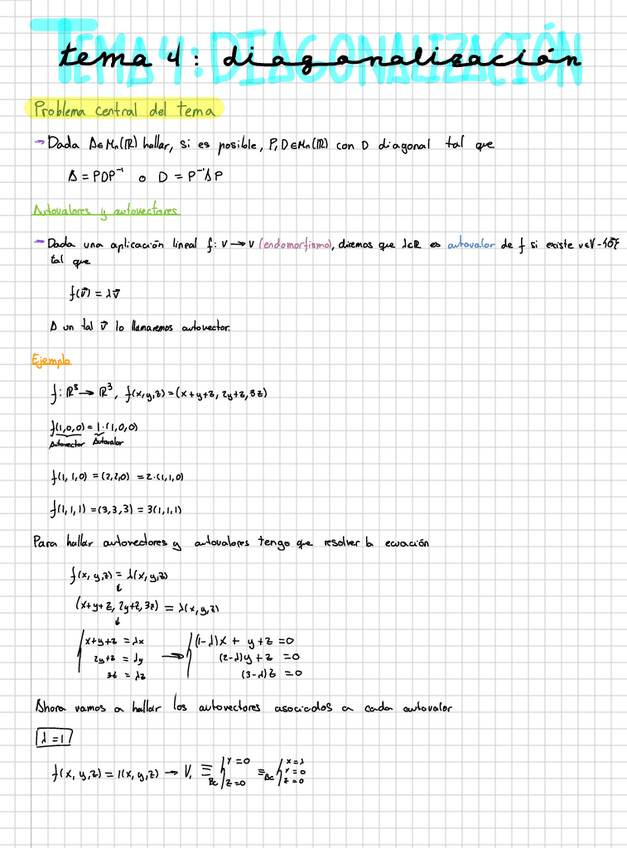 TEMA 4: DIAGONALIZACIÓN
tema 4: diagonalización
Problema central del tema
→ Dada A∈Mn(ℝ) hallar, si es posible, P, D∈Mn(ℝ) con D diagonal tal que
A = PDP⁻¹ o D = P⁻¹AP
Autovalores y autovectores
→ Dada una aplicación lineal f: V → V (endomorfismo), diremos que λ∈ℝ es autovalor de f si existe v∈V-{0⃗}
tal que
f(v⃗) = λv⃗
A un tal v⃗ lo llamaremos autovector.
Ejemplo
f: ℝ³ → ℝ³, f(x,y,z) = (x+y+z, 2y+z, 3z)
f(1,0,0) = 1·(1,0,0)
Autovector Autovalor
f(1,1,0) = (2,2,0) = 2·(1,1,0)
f(1,1,1) = (3,3,3) = 3(1,1,1)
Para hallar autovectores y autovalores tengo que resolver la ecuación
f(x,y,z) = λ(x,y,z)
↓
(x+y+z, 2y+z, 3z) = λ(x,y,z)
↓
x+y+z = λx → (1-λ)x + y+z = 0
2y+z = λy (2-λ)y + z = 0
3z = λz (3-λ)z = 0
Ahora vamos a hallar los autovectores asociados a cada autovalor
λ = 1
f(x,y,z) = 1(x,y,z) → V₁ ≡Bc { y = 0 z = 0 ≡Bc { x = λ y = 0 z = 0